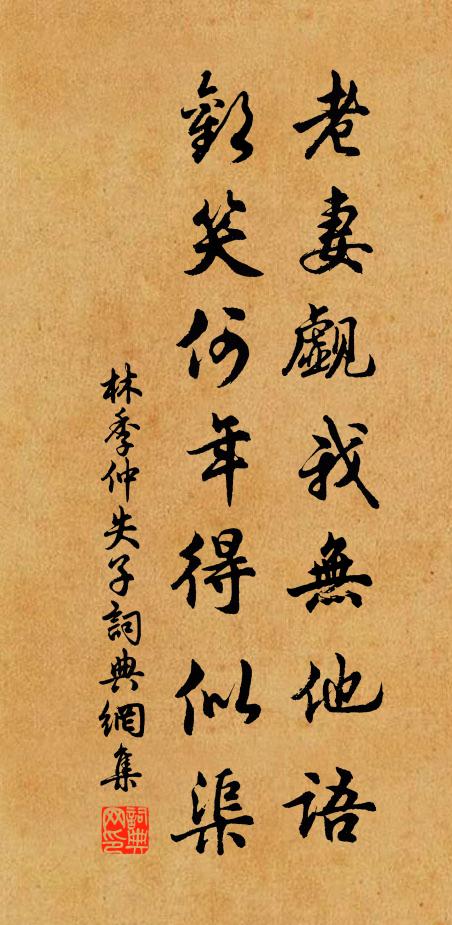 老妻覷我無他語
歡笑何年得似渠
林季仲失子詞典網集
詞典網印